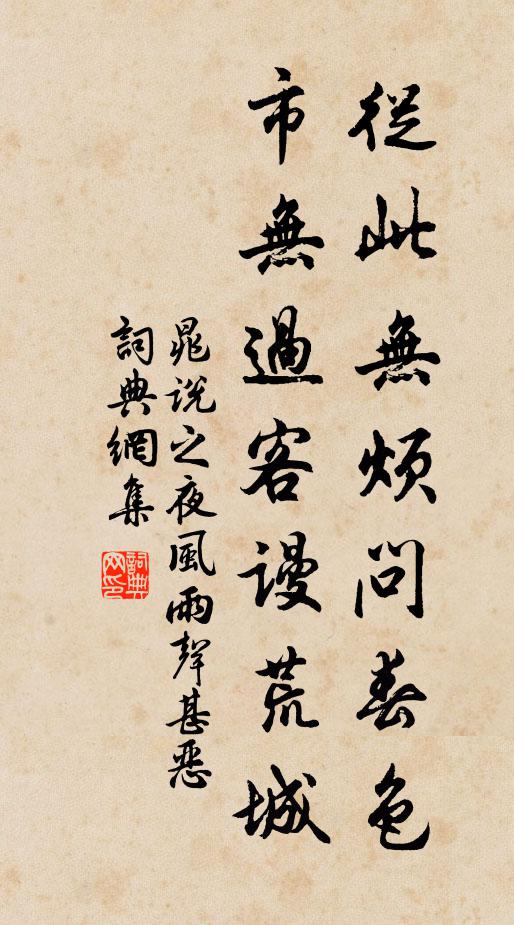 從此無煩問春色
市無過客謾荒城
晁說之夜風雨聲甚惡
詞典網集
詞典
网印